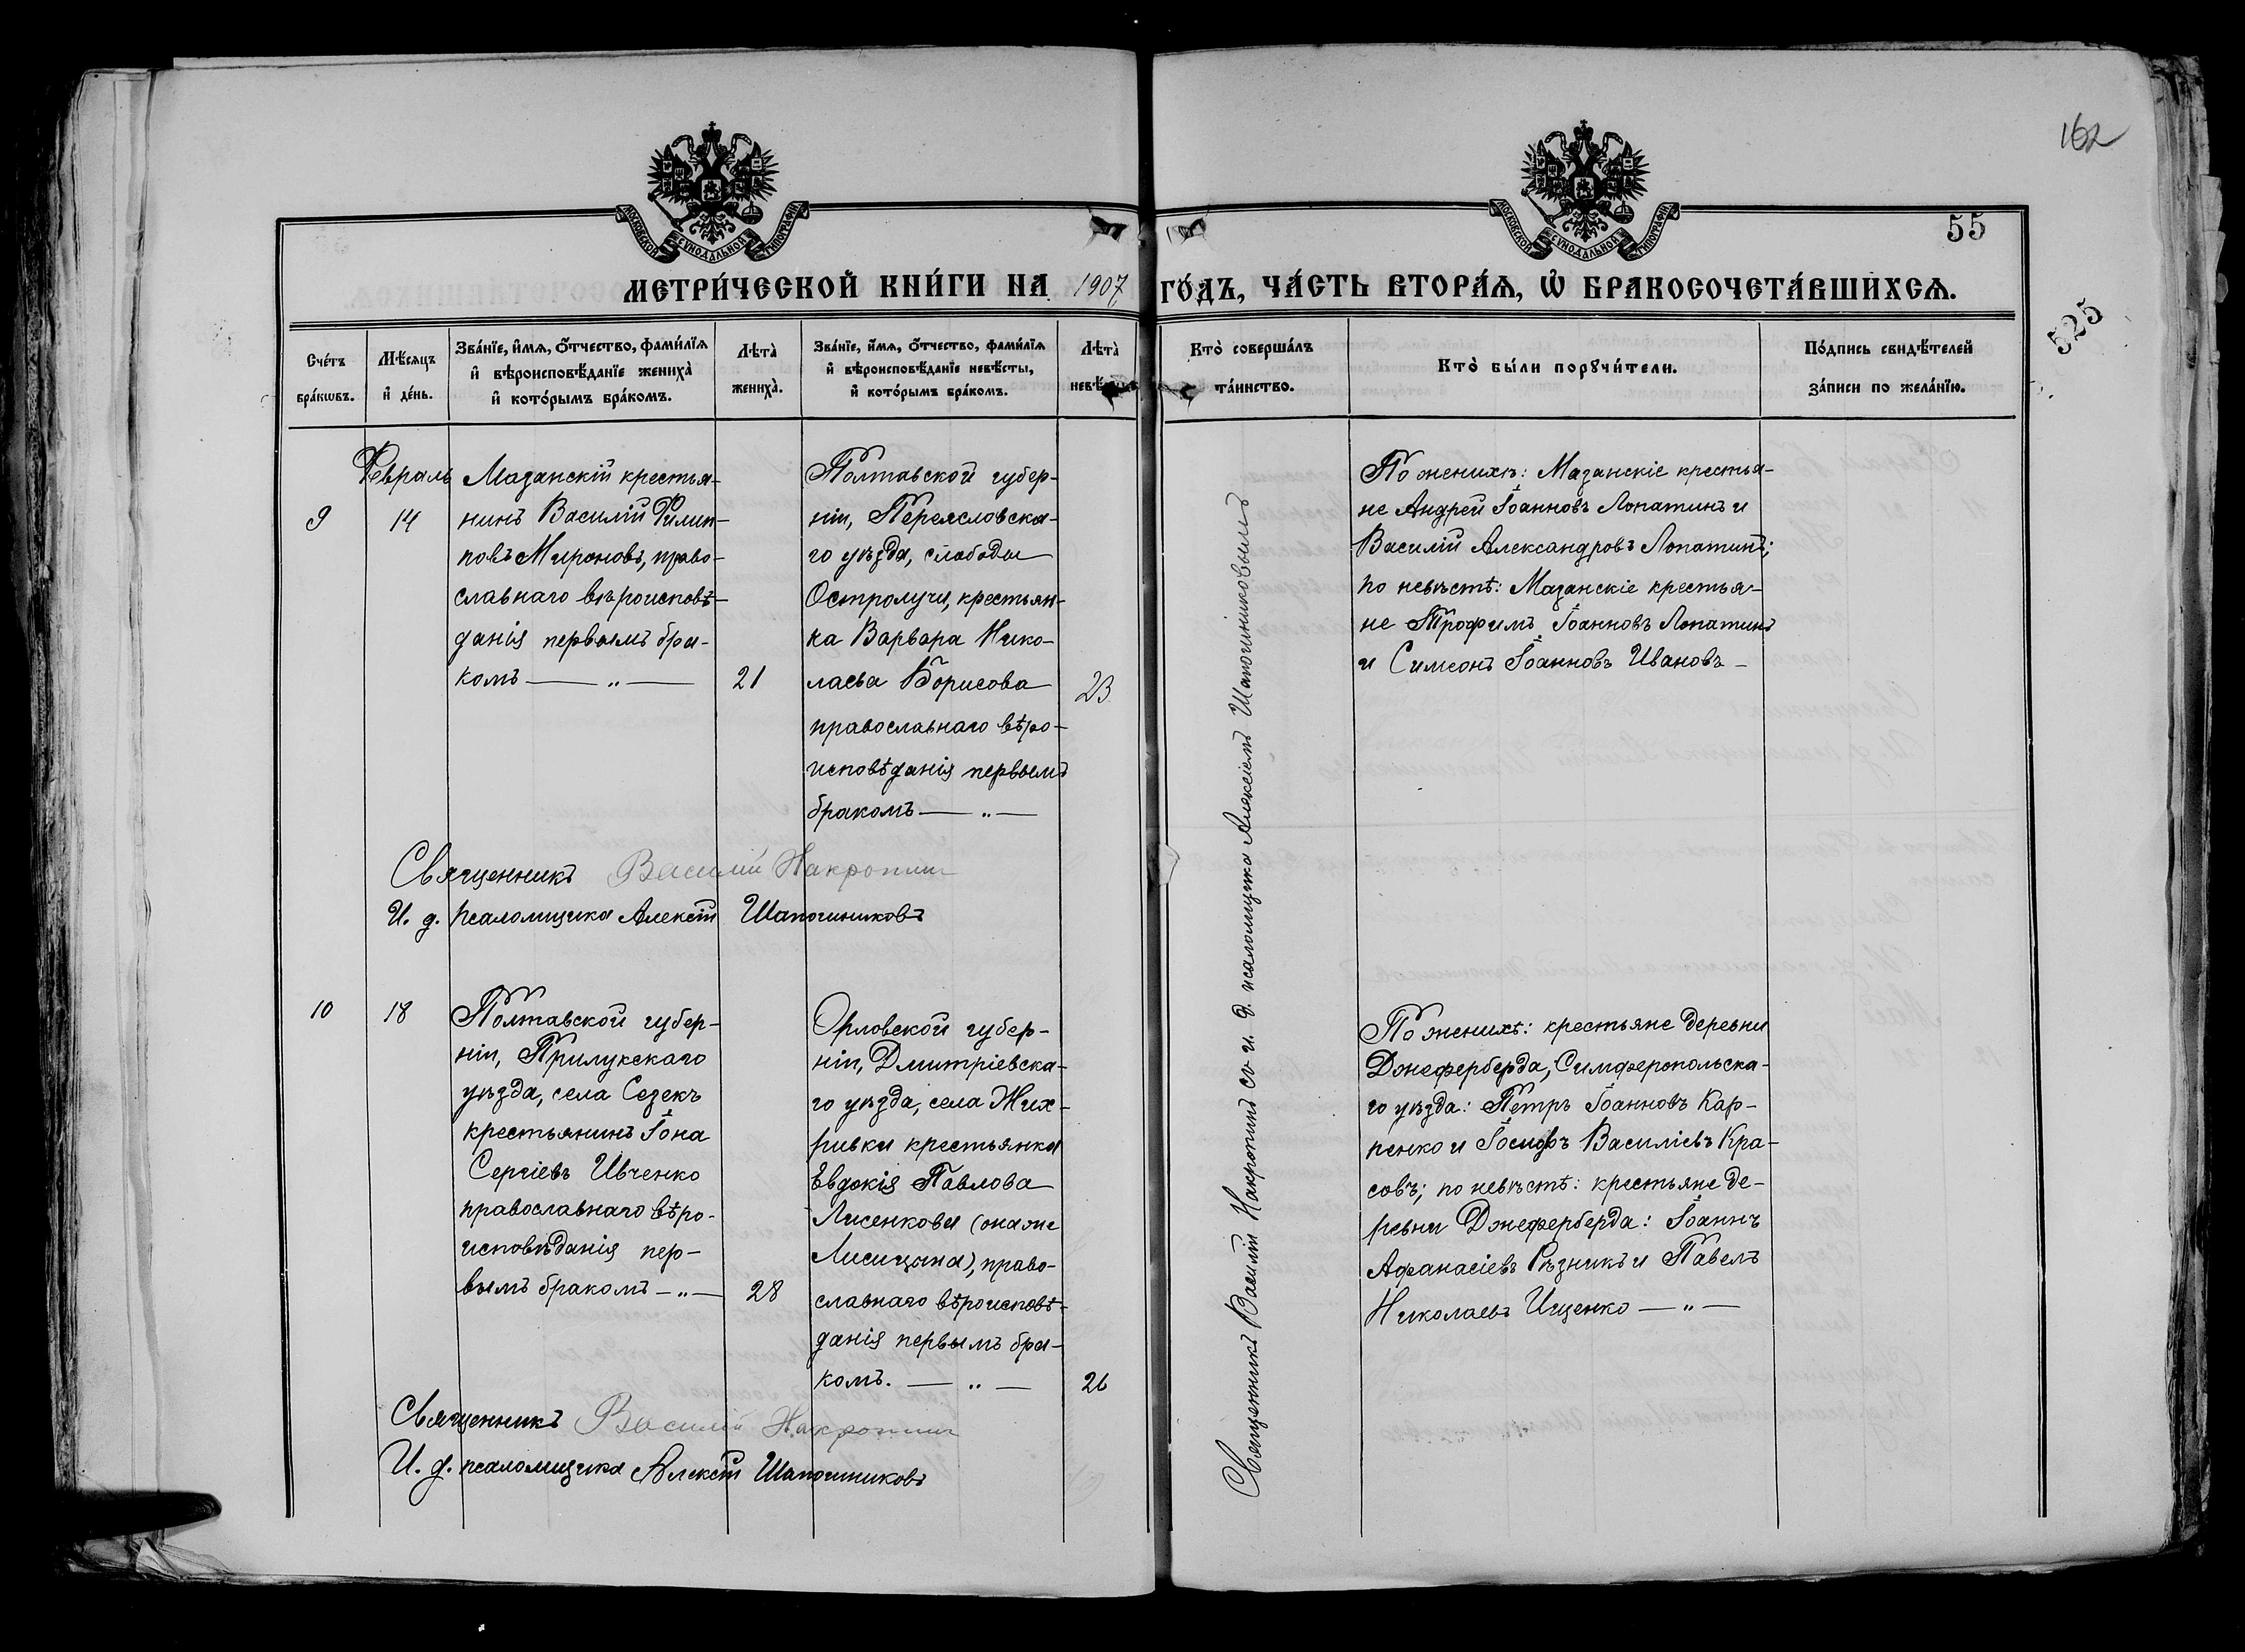 162
55
525
МОСКОВСКОЙ СѴНОДАЛЬНОЙ ТИПОГРАФІИ
МОСКОВСКОЙ СѴНОДАЛЬНОЙ ТИПОГРАФІИ
МЕТРИ́ЧЕСКОЙ КНИ́ГИ НА 1907 ГО́ДЪ, ЧА́СТЬ ВТОРА́Ѧ, Ѽ БРАКОСОЧЕТА́ВШИХСѦ.
Сче́тъ
бра́кѡвъ.
Мѣ́сяцъ
и҆ де́нь.
Зва́нїе, и҆́мѧ, ѻ҆́тчество, фами́лїѧ
и҆ вѣроисповѣ́данїе жениха̀
и҆ кото́рымъ бра́комъ.
Лѣта̀
жениха̀.
Зва́нїе, и҆́мѧ, ѻ҆́тчество, фами́лїѧ
и҆ вѣроисповѣ́данїе невѣ́сты,
и҆ кото́рымъ бра́комъ.
Лѣта̀
Кто̀ соверша́лъ
та́инство.
Кто̀ бы́ли порꙋчи́тели.
По́дпись свидѣ́телей
за́писи по жела́нїю.
Февраль
9
14
Мазанскій крестья-
нинъ Василій Филип-
повъ Мироновъ, право-
славнаго вѣроисповѣ-
данія первымъ бра-
комъ — „ —
21
Полтавской губер-
ніи, Переясловска-
го уѣзда, слободы
Остролучи, крестьян-
ка Варвара Нико-
лаева Борисова
православнаго вѣро-
исповѣданія первымъ
бракомъ — „ —
23
По женихѣ: Мазанскіе крестья-
не Андрей Іоанновъ Лопатинъ и
Василій Александровъ Лопатинъ;
по невѣстѣ: Мазанскіе крестья-
не Трофимъ Іоанновъ Лопатинъ
и Симеонъ Іоанновъ Ивановъ —
Священникъ Василій Накропин
И. д. псаломщика Алексій Шапошниковъ
10
18
Полтавской губер-
ніи, Прилукскаго
уѣзда, села Сезекъ
крестьянинъ Іона
Сергіевъ Ивченко
православнаго вѣро-
исповѣданія пер-
вымъ бракомъ — „ —
28
Орловской губер-
ніи, Дмитріевска-
го уѣзда, села Жих-
ривки крестьянка
Евдокія Павлова
Лисенкова (она же
Лисицына), право-
славнаго вѣроисповѣ-
данія первымъ бра-
комъ. — „ —
26
По женихѣ: крестьяне деревни
Джеферберда, Симферопольска-
го уѣзда: Петръ Іоанновъ Кар-
пенко и Іосифъ Василіевъ Кра-
совъ; по невѣстѣ: крестьяне де-
ревни Джеферберда: Іоаннъ
Афанасіевъ Рѣзникъ и Павелъ
Николаевъ Ищенко — „ —
Священникъ Василій Накропин
И. д. псаломщика Алексій Шапошниковъ
Священникъ Василій Накропинъ со и. д. псаломщика Алексіемъ Шапошниковымъ